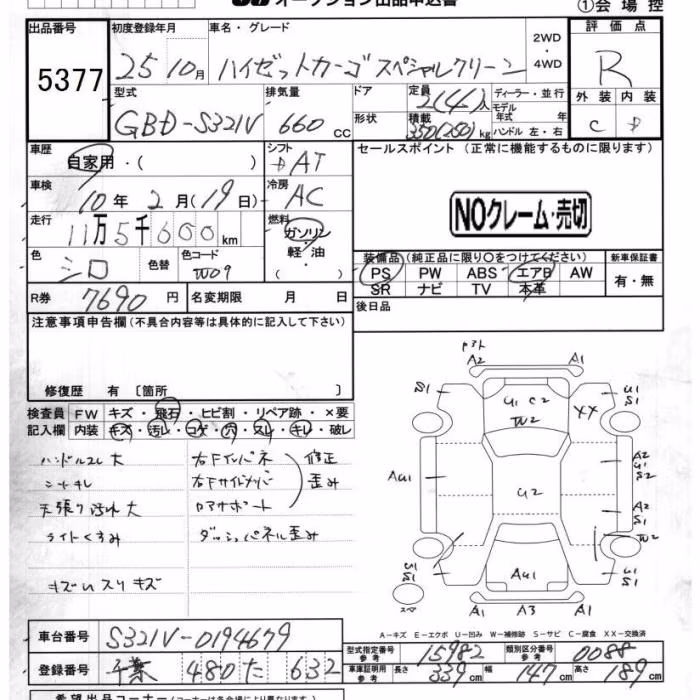 オークション出品申込書
①会場控
出品番号 5377
初度登録年月 25 10月
車名・グレード ハイゼットカーゴ スペシャルクリーン
2WD・4WD
評価点 R
外装 C 内装 D
型式 GBD-S321V
排気量 660 cc
ドア 形状
定員 2(4)人
積載 350(250)kg
ディーラー・並行
モデル年式 年
ハンドル 左・右
車歴 自家用・( )
シフト DAT
セールスポイント (正常に機能するものに限ります)
車検 10年 2月(19日)
冷房 AC
NOクレーム・売切
走行 11万5千600km
燃料 ガソリン・軽・油( )
色 シロ 色替 色コード W09
装備品(純正品に限り○をつけてください)
新車保証書
PS PW ABS エアB AW
SR ナビ TV 本革
有・無
R券 7690円 名変期限 月 日
後日品
注意事項申告欄(不具合内容等は具体的に記入して下さい)
修復歴 有 〔箇所 〕
検査員記入欄
FW キズ・飛石・ヒビ割・リペア跡・×要
内装 キズ・汚レ・コゲ・穴・スレ・キレ・破レ
ハンドルスレ大
シートキレ
天張り汚れ大
ライトくすみ
キズUスリキズ
右Fインパネ
右Fサイドメンバー
コアサポート
修正 歪み
ダッシュパネル歪み
A2 A1
S1 U1 C2 W2 U1 S1
XX
AU1 U2 A2 U1 S2
A2 S1
W2
U1 S1 AU1 U1 S1
スペア
A1 A3 A1
A-キズ E-エクボ U-凹み W-補修跡 S-サビ C-腐食 XX-交換済
車台番号 S321V-0194679
型式指定番号 参考 15982
類別区分番号 参考 0088
登録番号 千葉 480 た 632
車庫証明用 参考 長さ 339cm 幅 147cm 高さ 189cm
希望出品コーナー(コーナーは各会場により異なります)